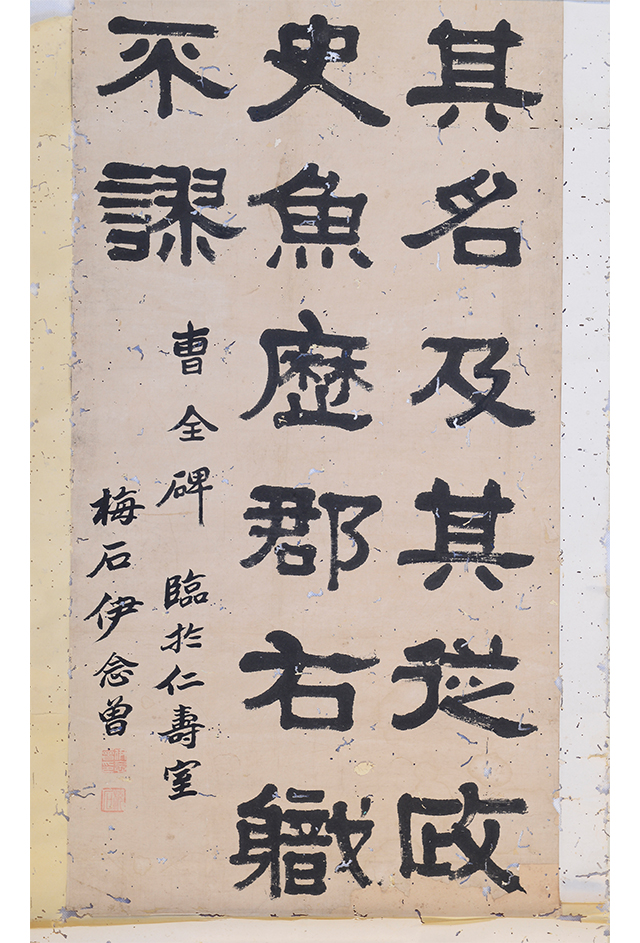 其名及其從政
史魚歷郡右職
不謬
曹全碑 臨於仁壽室
梅石伊念曾